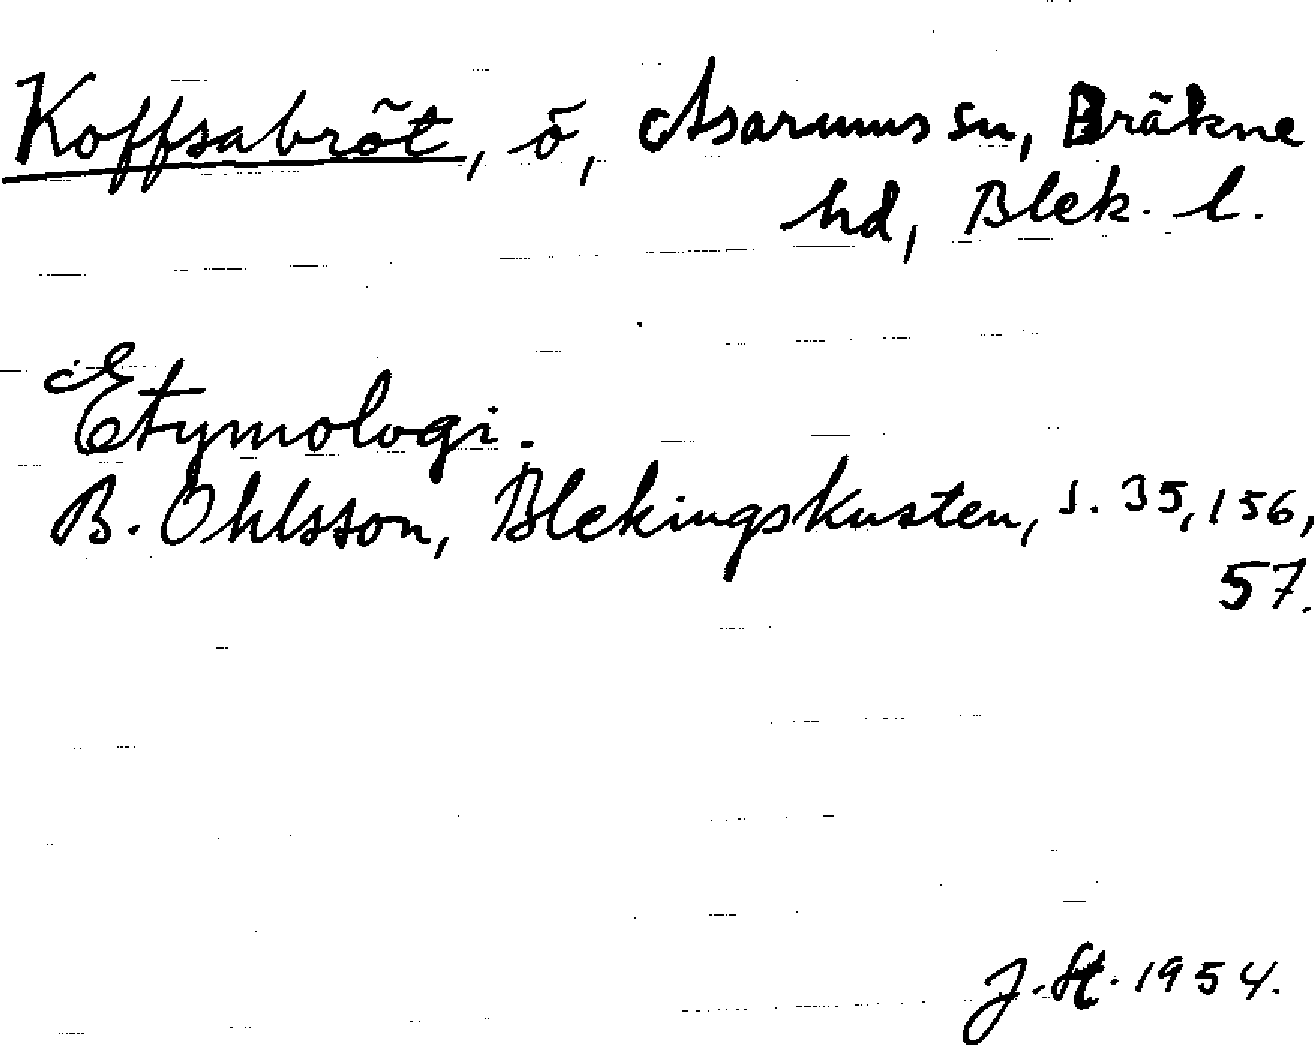 Koffsabröt, ö, Asarums sn, Bräkne
hd, Blek. l.
Etymologi.
B. Ohlsson, Blekingskusten, s. 35, 156,
57.
J. St. 1954.